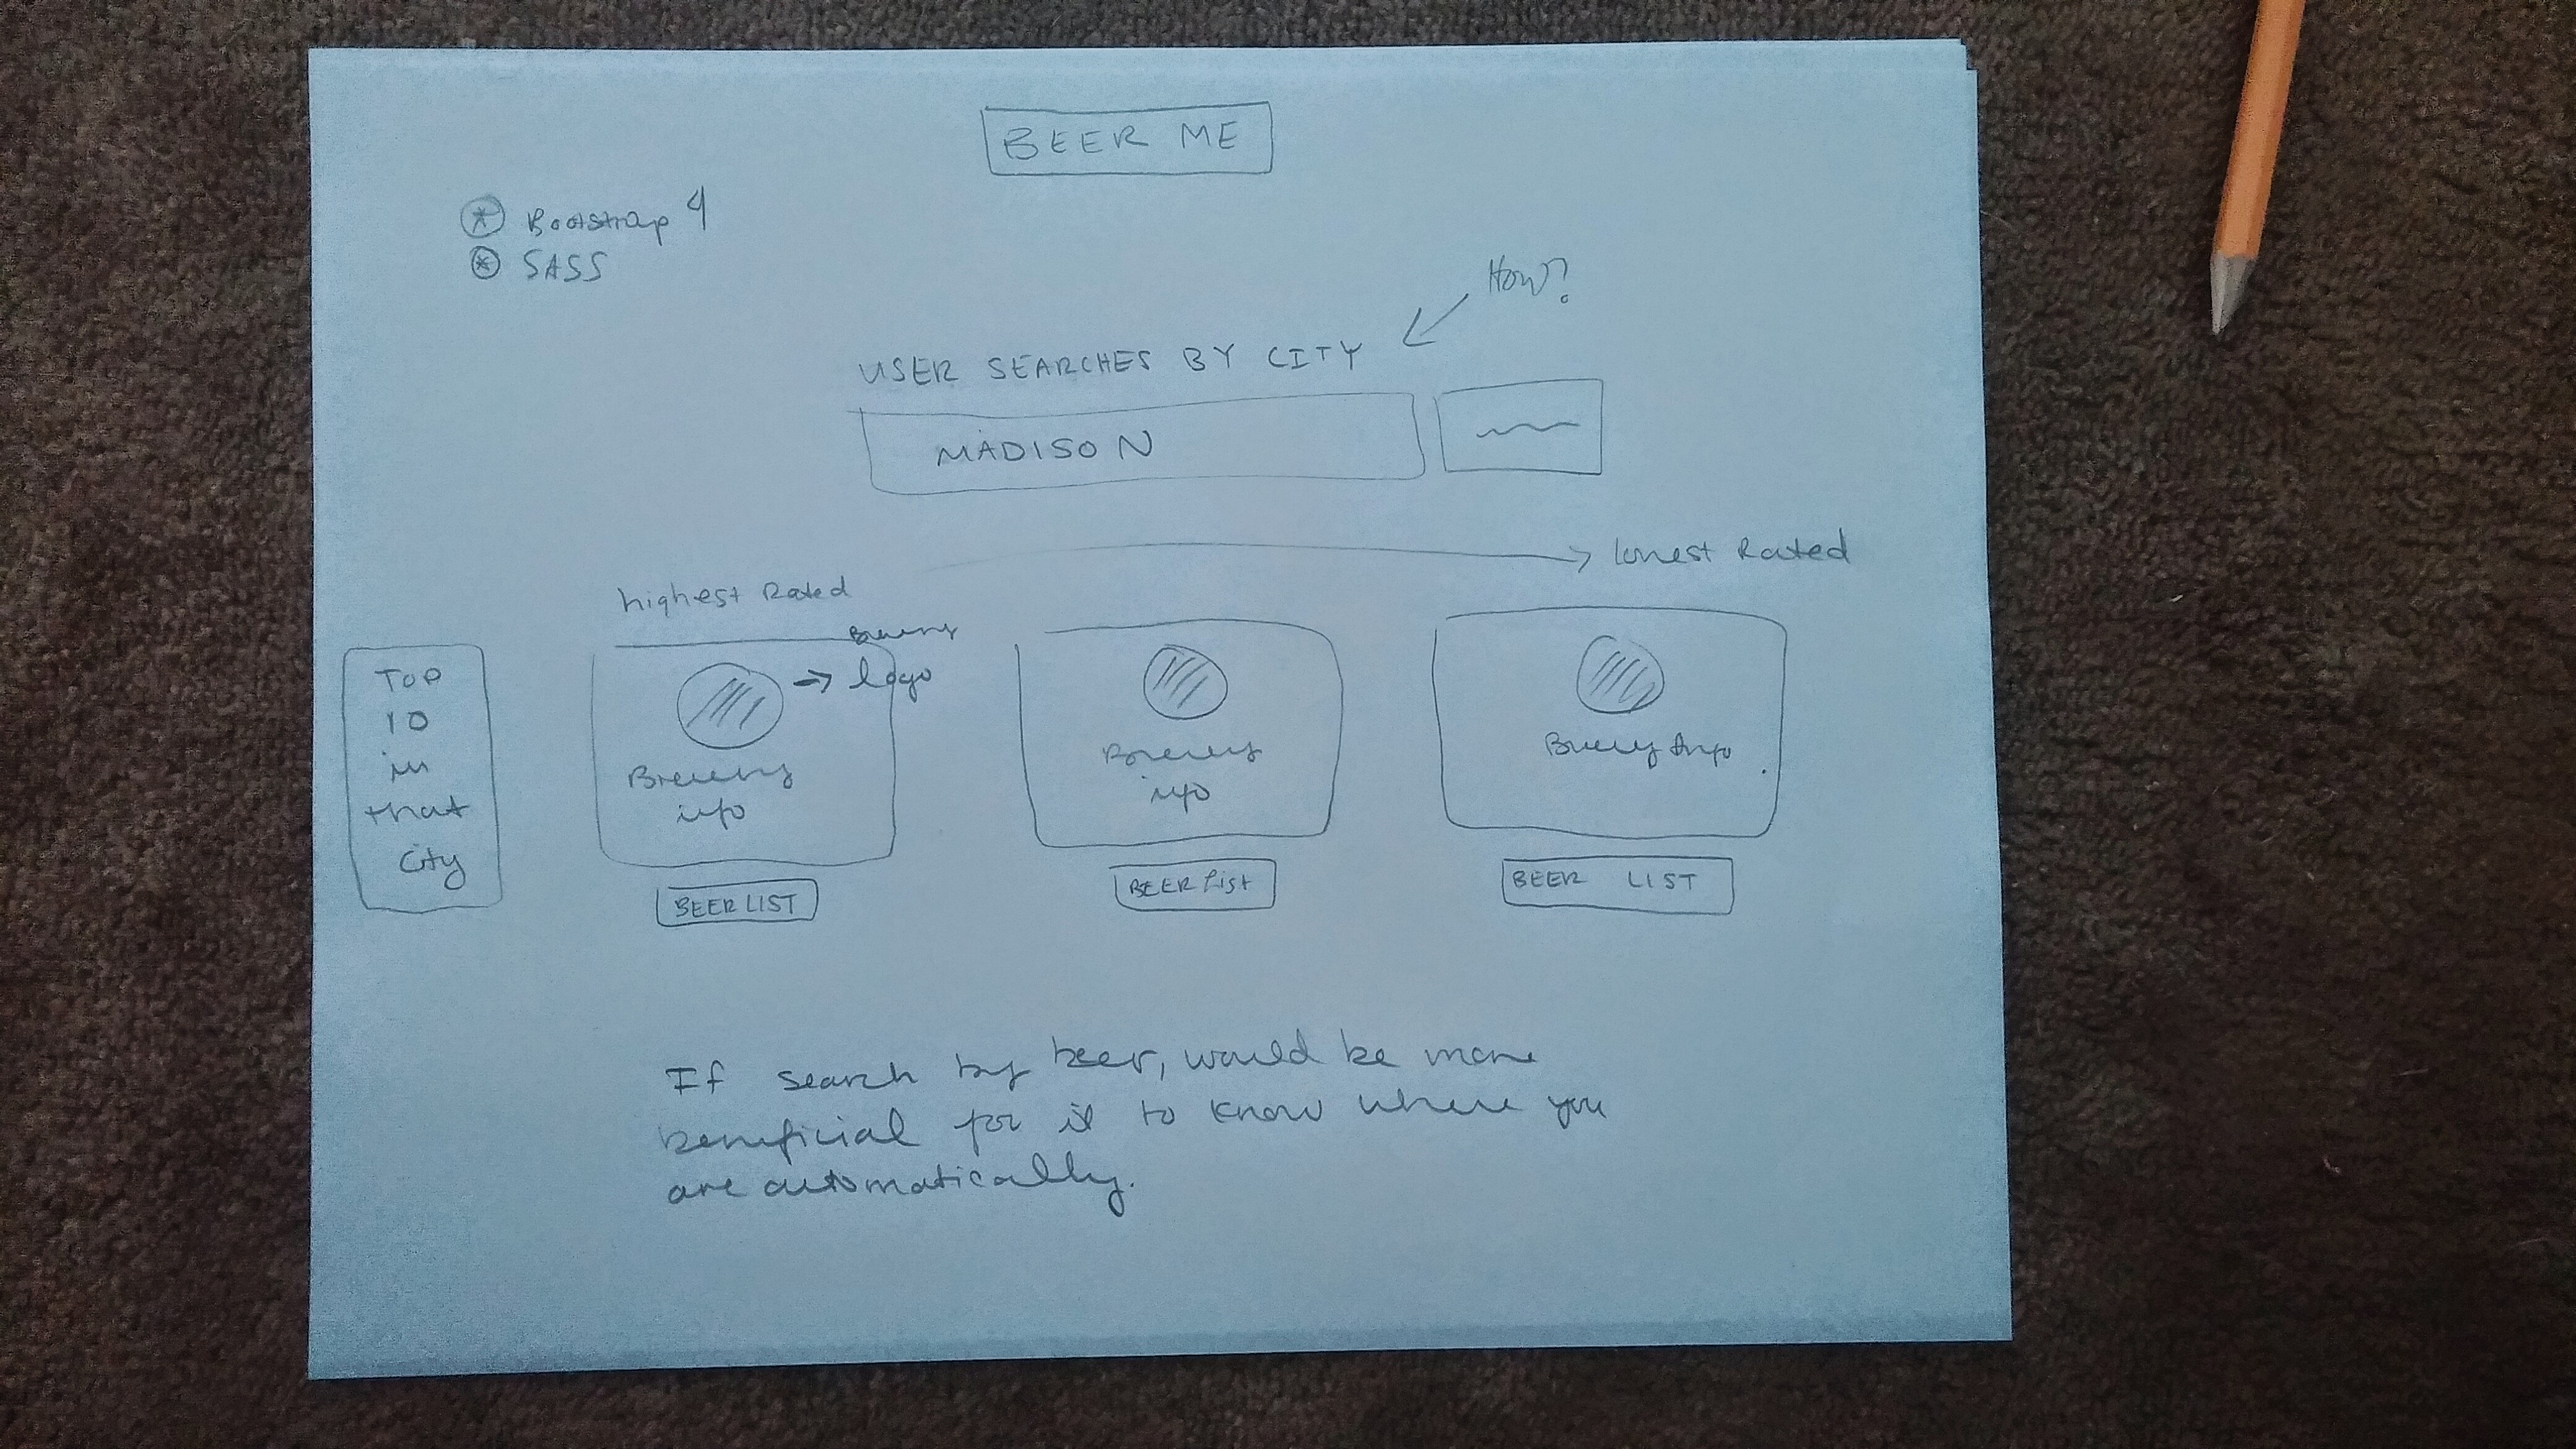 BEER ME
Bootstrap 4
SASS
How?
USER SEARCHES BY CITY
MADISON
lowest Rated
highest Rated
Brewery
logo
TOP
10
in
that
City
Brewery
info
Brewery
info
Brewery Info
BEER LIST
BEER LIST
BEER LIST
If search by beer, would be more
beneficial for it to know where you
are automatically.